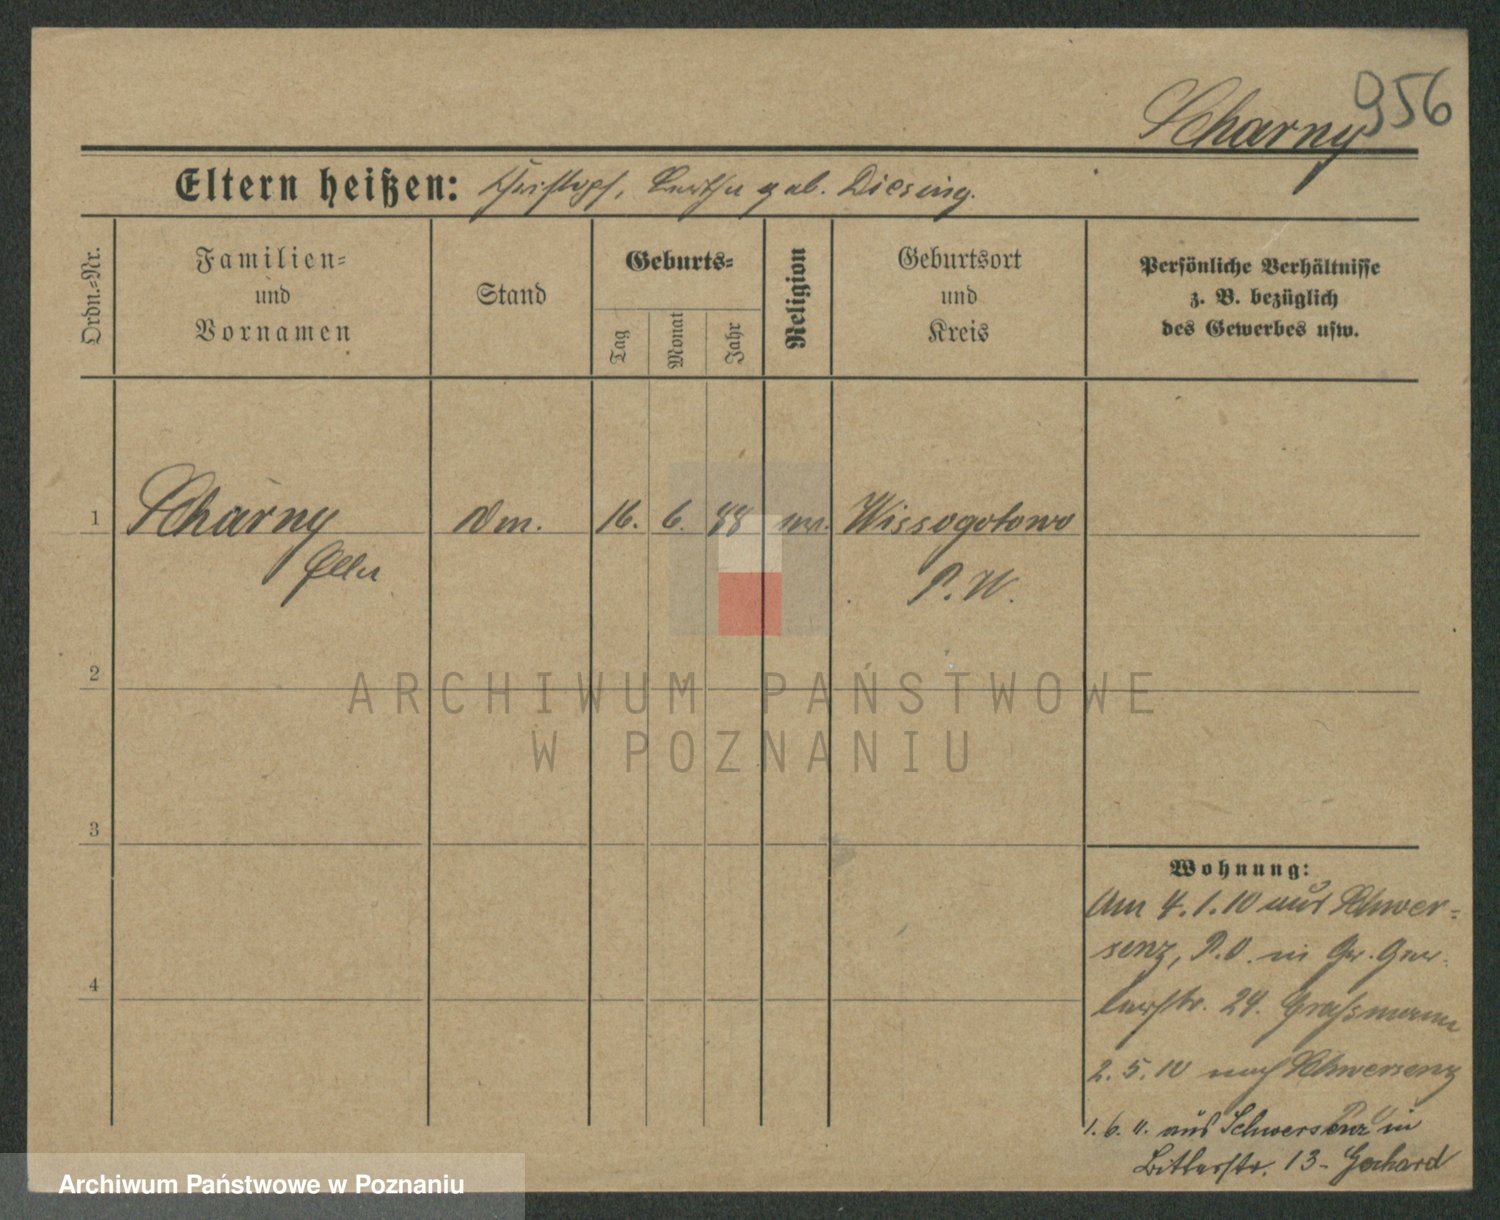 956
Scharny
Eltern heißen: Christoph, Bertha geb. Diesing.
Ordn.=Nr.
Familien=
und
Vornamen
Stand
Geburts=
Tag
Monat
Jahr
Religion
Geburtsort
und
Kreis
Persönliche Verhältnisse
z. B. bezüglich
des Gewerbes usw.
1 Scharny 16. 6. 88 Wissogotowo
Ella P. W.
2
3
4
ARCHIWUM PAŃSTWOWE
W POZNANIU
Wohnung:
Am 4.1.10 aus Schwer=
senz, P.O. in Gr. Ger-
berstr. 24. Graßmann
2.5.10 nach Schwersenz
1.6.11. aus Schwersenz in
Bitterstr. 13 - Gerhard
Archiwum Państwowe w Poznaniu